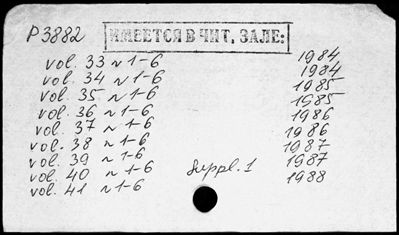 P3882 ИМЕЕТСЯ В ЧИТ. ЗАЛЕ:
vol. 33 N 1-6 1984
vol. 34 N 1-6 1984
vol. 35 N 1-6 1985
vol. 36 N 1-6 1985
vol. 37 N 1-6 1986
vol. 38 N 1-6 1986
vol. 39 N 1-6 1987
vol. 40 N 1-6 Suppl. 1 1987
vol. 41 N 1-6 1988